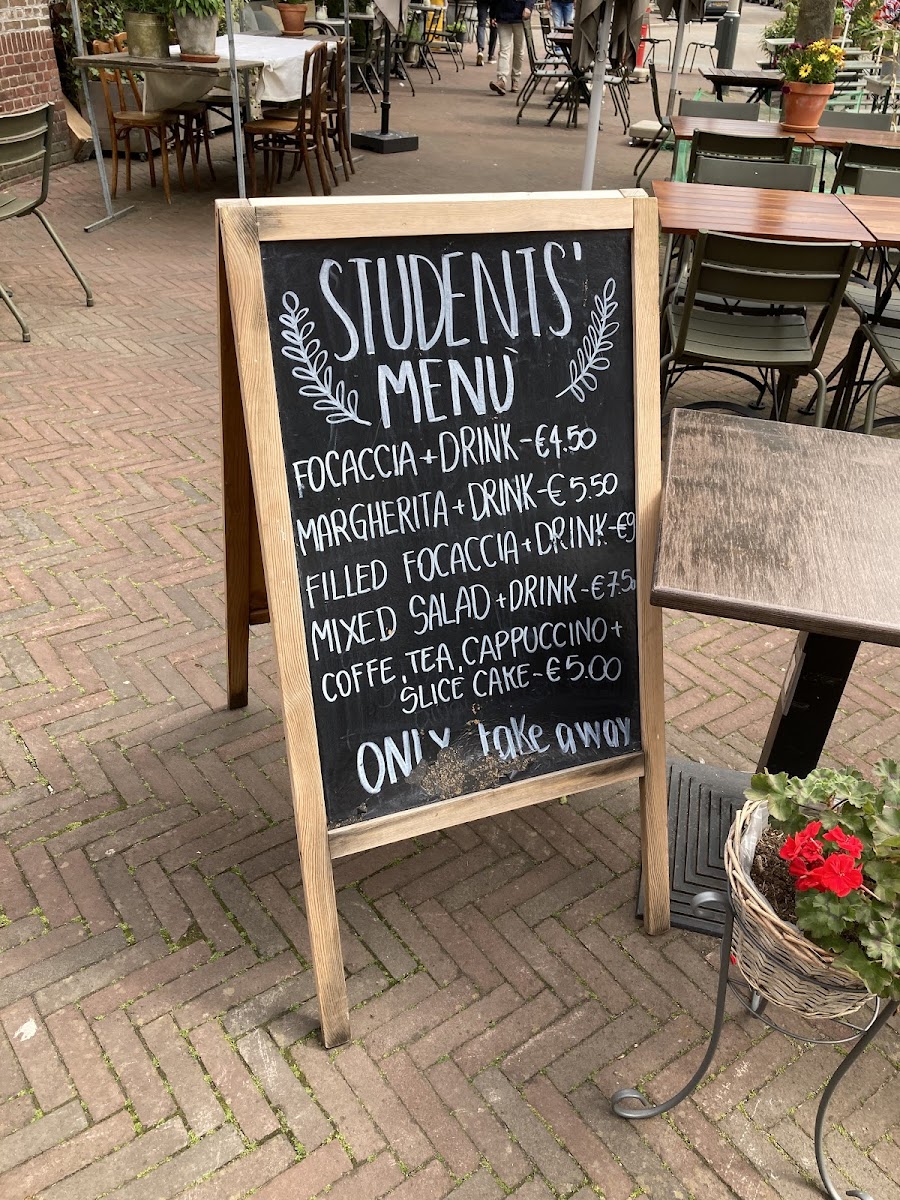 STUDENTS'
MENÙ
FOCACCIA + DRINK - €4.50
MARGHERITA + DRINK - €5.50
FILLED FOCACCIA + DRINK - €9
MIXED SALAD + DRINK - €7.50
COFFE, TEA, CAPPUCCINO +
SLICE CAKE - €5.00
ONLY take away